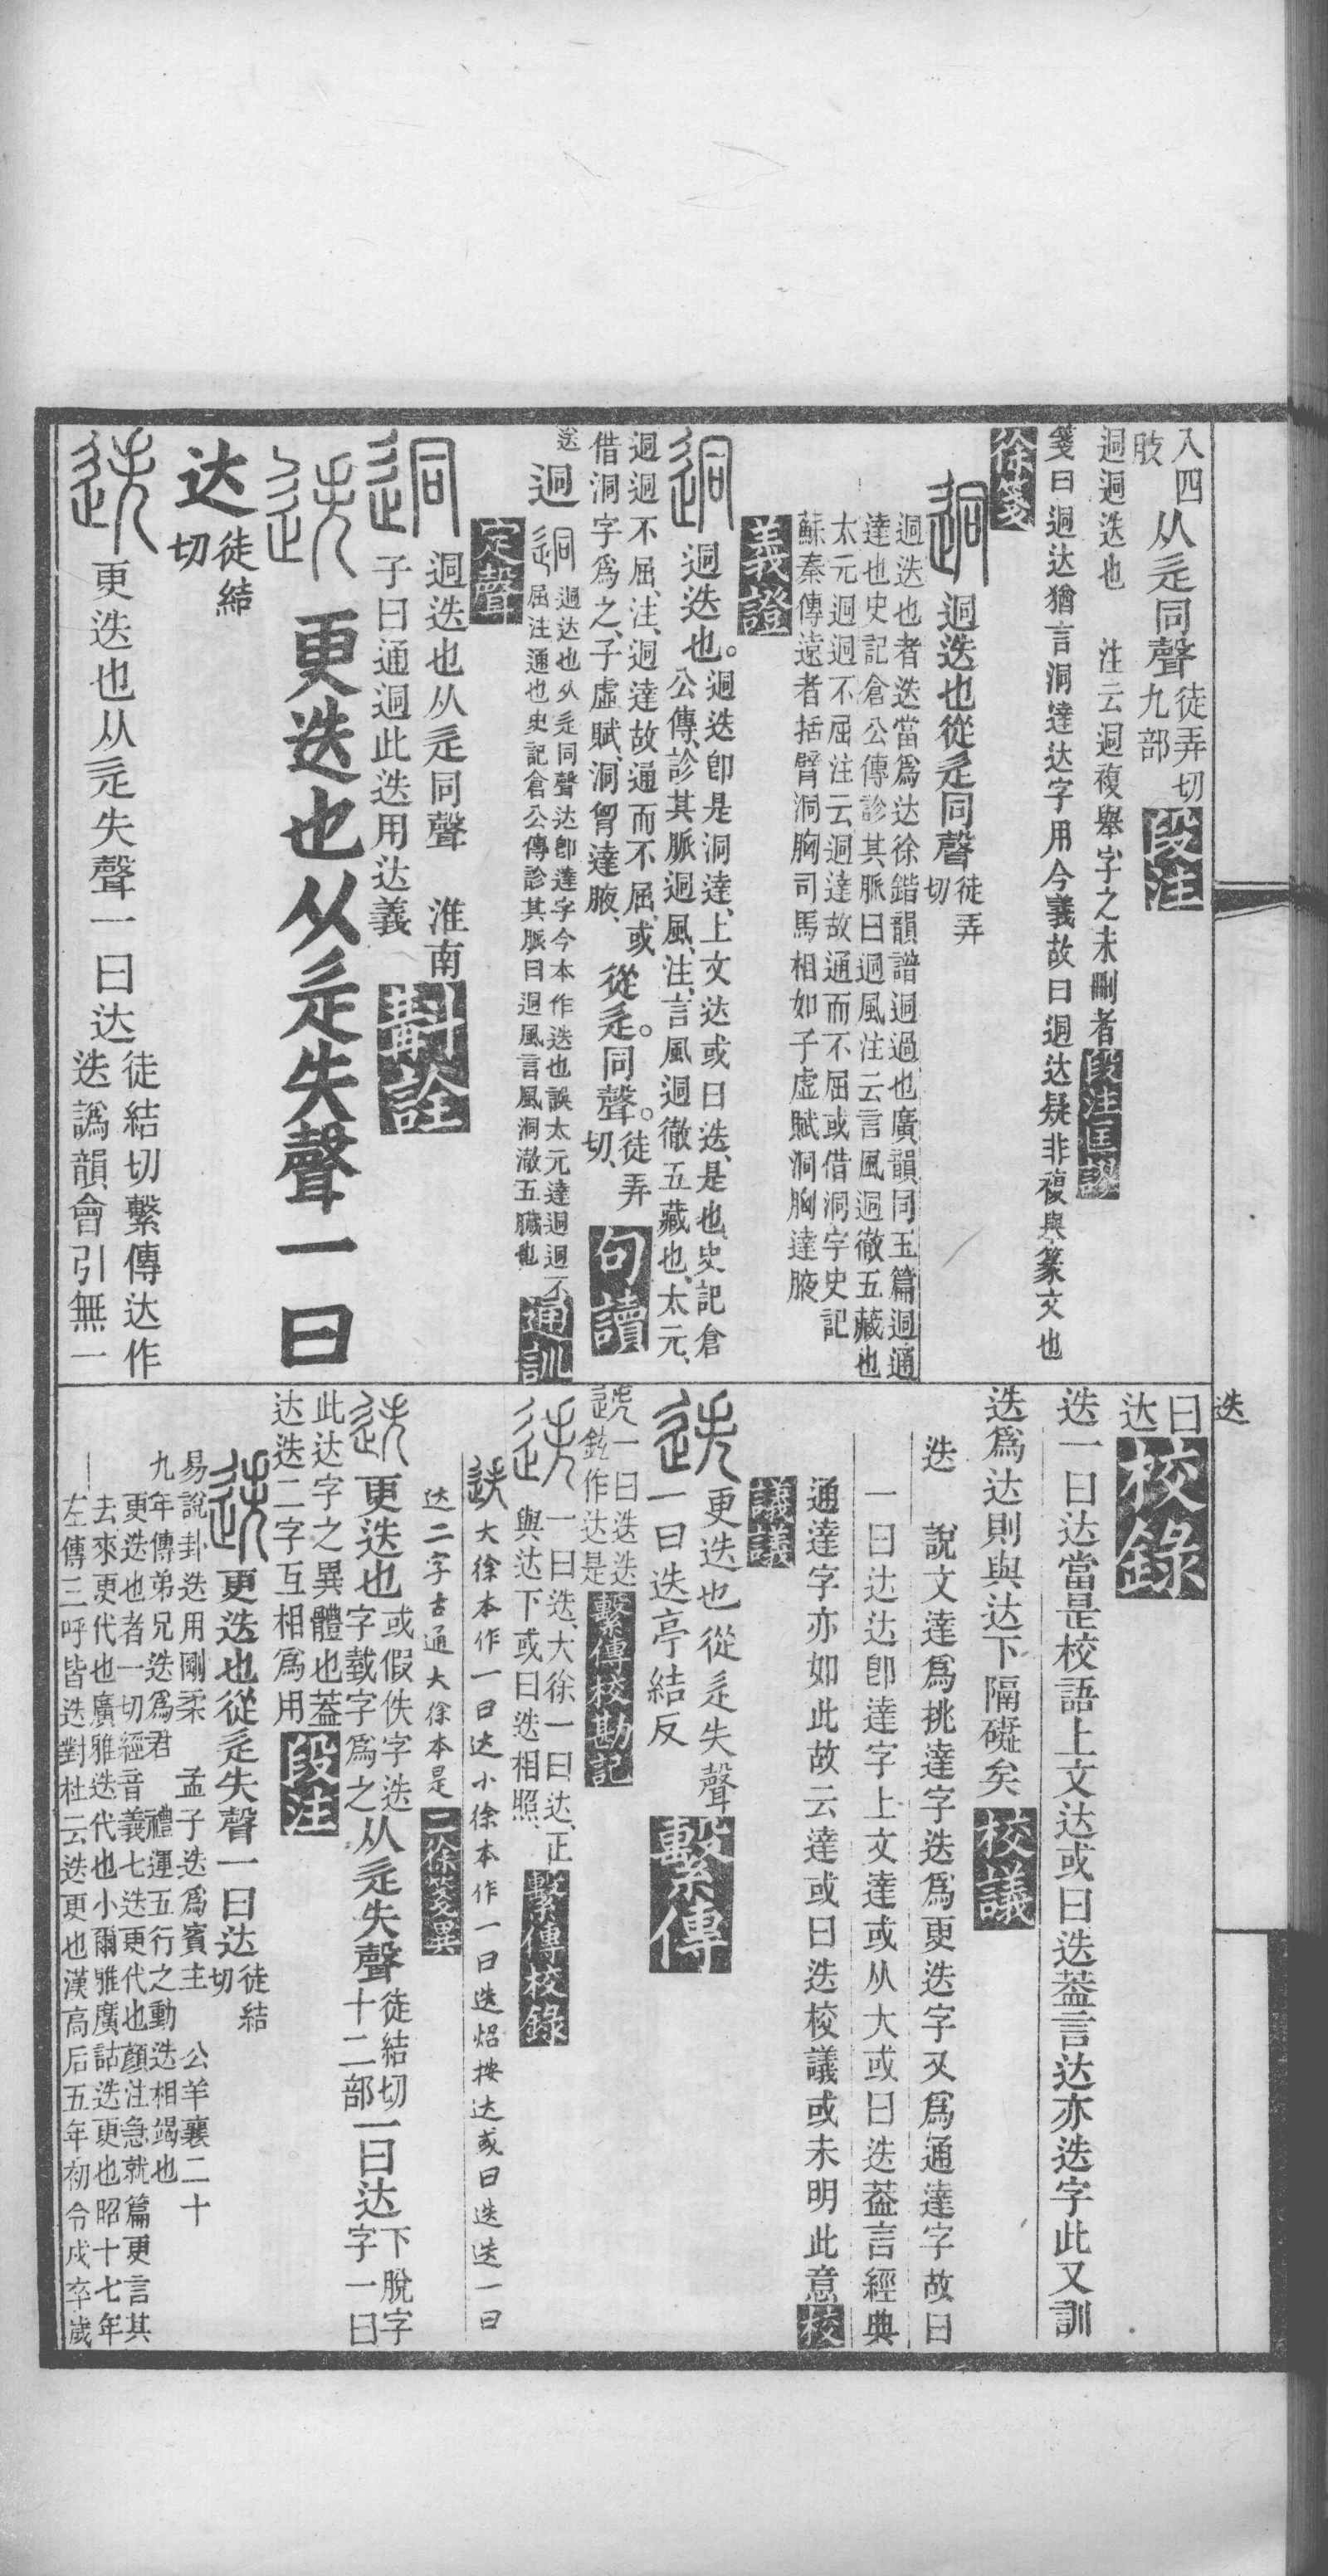 入四
肢
从辵同聲
徒弄切
九部
段注
迵迵迭也　注云迵複舉字之未刪者
段注匡謬
箋曰迵达猶言洞達达字用今義故曰迵达疑非複與篆文也
徐箋
迵迭也從辵同聲
徒弄
切
迵迭也者迭當爲达徐鍇韻譜迵過也廣韻同玉篇迵通
達也史記倉公傳診其脈曰迵風注云言風迵徹五藏也
太元迵迵不屈注云迵達故通而不屈或借洞字史記
蘇秦傳遠者括臂洞胸司馬相如子虛賦洞胸達腋
義證
迵迭也。
迵迭卽是洞達、上文达或曰迭、是也、史記倉
公傳、診其脈迵風、注、言風迵徹五藏也、太元、
迵迵不屈、注、迵達故通而不屈、或
借洞字爲之、子虛賦、洞胷達腋、
從辵。同聲。
徒弄
切、
句讀
迵
迵达也从辵同聲达卽達字今本作迭也誤太元達迵迵不
屈注通也史記倉公傳診其脈曰迵風言風洞澈五臟也
通訓
定聲
迵迭也从辵同聲　淮南
子曰通迵此迭用达義
斠詮
更迭也从辵失聲一曰
达
徒結
切
更迭也从辵失聲一曰达
徒結切繫傳达作
迭譌韻會引無一
迭
曰
达
校錄
迭一曰达當是校語上文达或曰迭葢言达亦迭字此又訓
迭爲达則與达下隔礙矣
校議
迭　說文達爲挑達字迭爲更迭字又爲通達字故曰
一曰达达卽達字上文達或从大或曰迭葢言經典
通達字亦如此故云達或曰迭校議或未明此意
校
議議
更迭也從辵失聲
一曰迭亭結反
繫傳
一曰迭迭
鉉作达是
繫傳校勘記
一曰迭、大徐一曰达、正
與达下或曰迭相照、
繫傳校錄
大徐本作一曰达小徐本作一曰迭炤按达或曰迭迭一曰
达二字古通大徐本是
二徐箋異
更迭也
或假佚字迭
字𢧵字爲之
从辵失聲
徒結切
十二部
一曰达
下脫字
字一曰
此达字之異體也葢
达迭二字互相爲用
段注
更迭也從辵失聲一曰达
徒結
切
易說卦迭用剛柔　孟子迭爲賓主　公羊襄二十
九年傳弟兄迭爲君　禮運五行之動迭相竭也
更迭也者一切經音義七迭更代也顏注急就篇更言其
去來更代也廣雅迭代也小爾雅廣詁迭更也昭十七年
左傳三呼皆迭對杜云迭更也漢高后五年初令戍卒歲